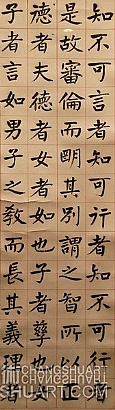 知不可言者知可行者知不可行者
是故審倫而明其別謂之智所以正
德者夫德者女者如也子者孳也女
子者言如男子之教而長其義理者